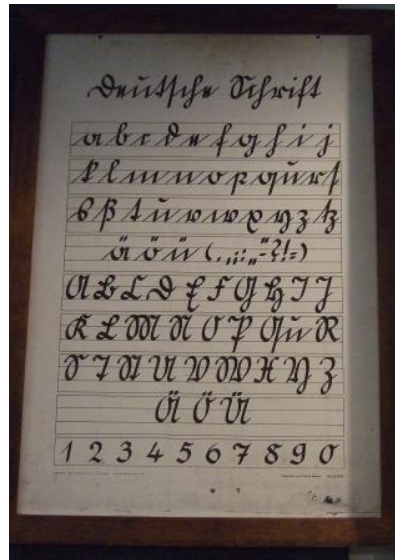 Deutsche Schrift
a b c d e f g h i j
k l m n o p qu r ſ
s ß t u v w x y z tz
ä ö ü ( . , ; : „ " - ? ! = )
A B C D E F G H I J
K L M N O P Qu R
S T St U V W X Y Z
Ä Ö Ü
1 2 3 4 5 6 7 8 9 0